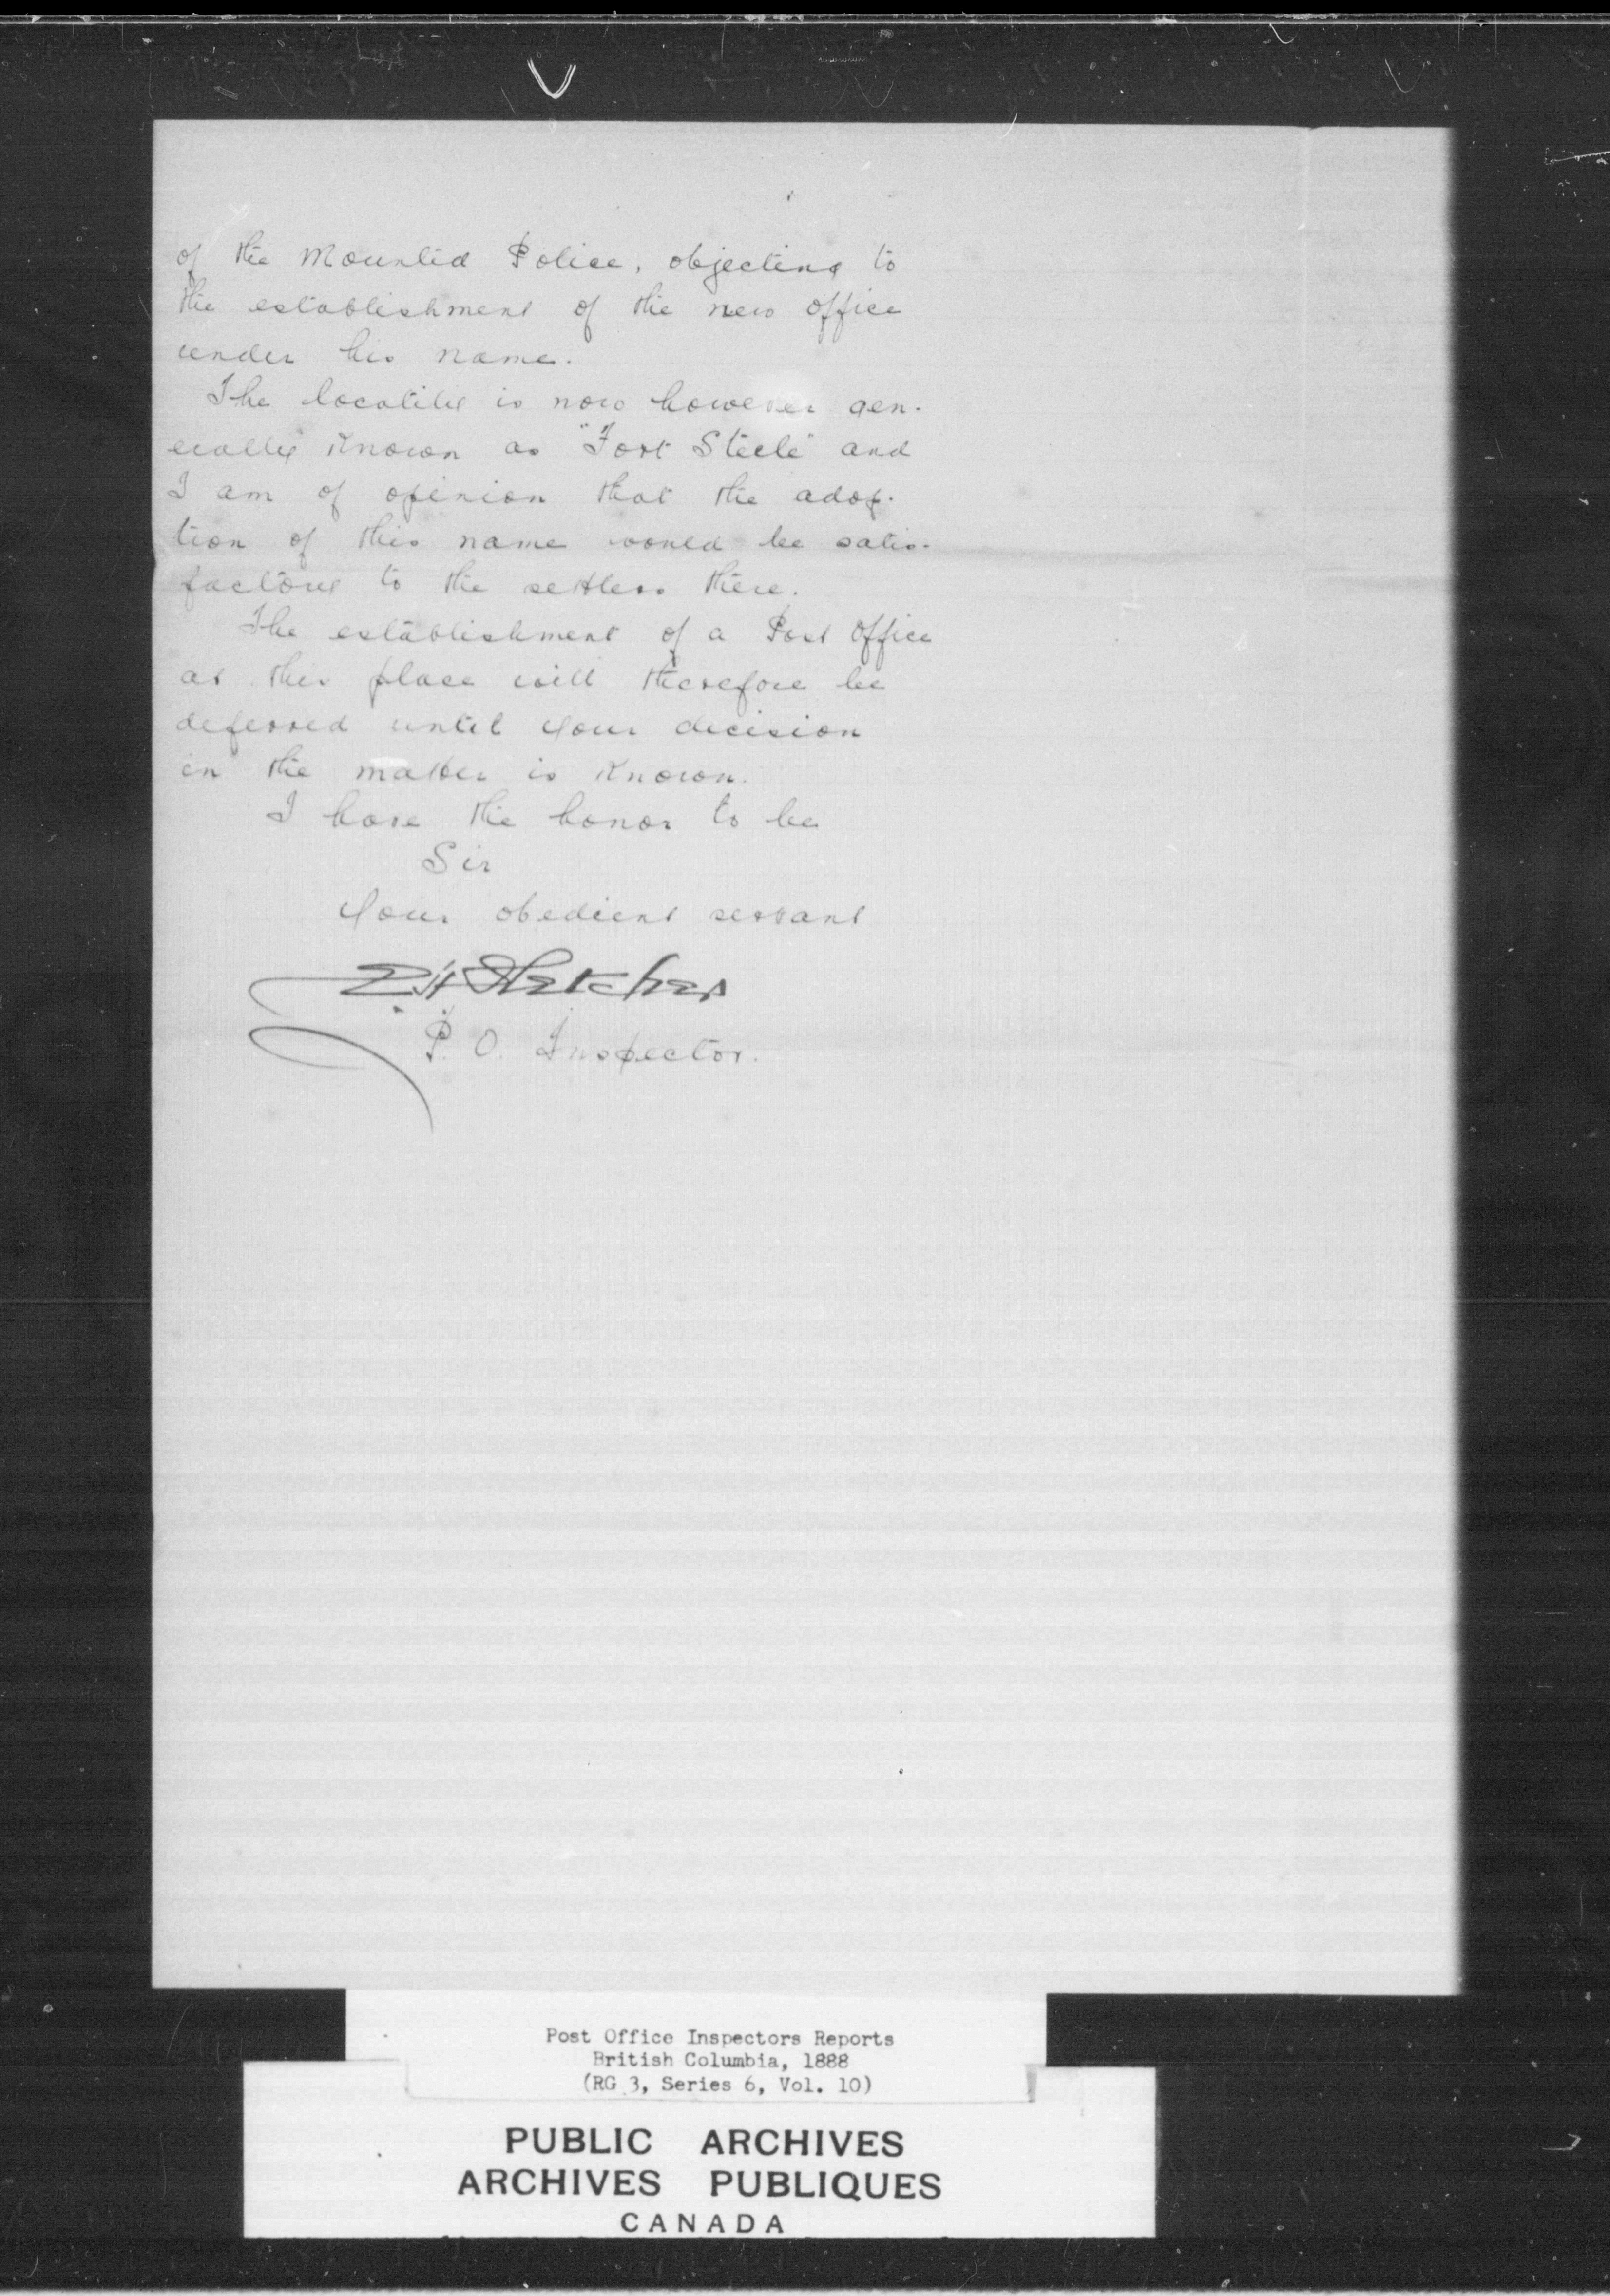 of the Mounted Police, objecting to
the establishment of the new office
under his name.
The locality is now however gen-
erally Known as "Fort Steele" and
I am of opinion that the adop-
tion of this name would be satis-
factory to the settlers there.
The establishment of a Post Office
at this place will therefore be
deferred until your decision
in the matter is Known.
I have the honor to be
Sir
Your obedient servant
E H Fletcher
P. O. Inspector.
Post Office Inspectors Reports
British Columbia, 1888
(RG 3, Series 6, Vol. 10)
PUBLIC ARCHIVES
ARCHIVES PUBLIQUES
CANADA